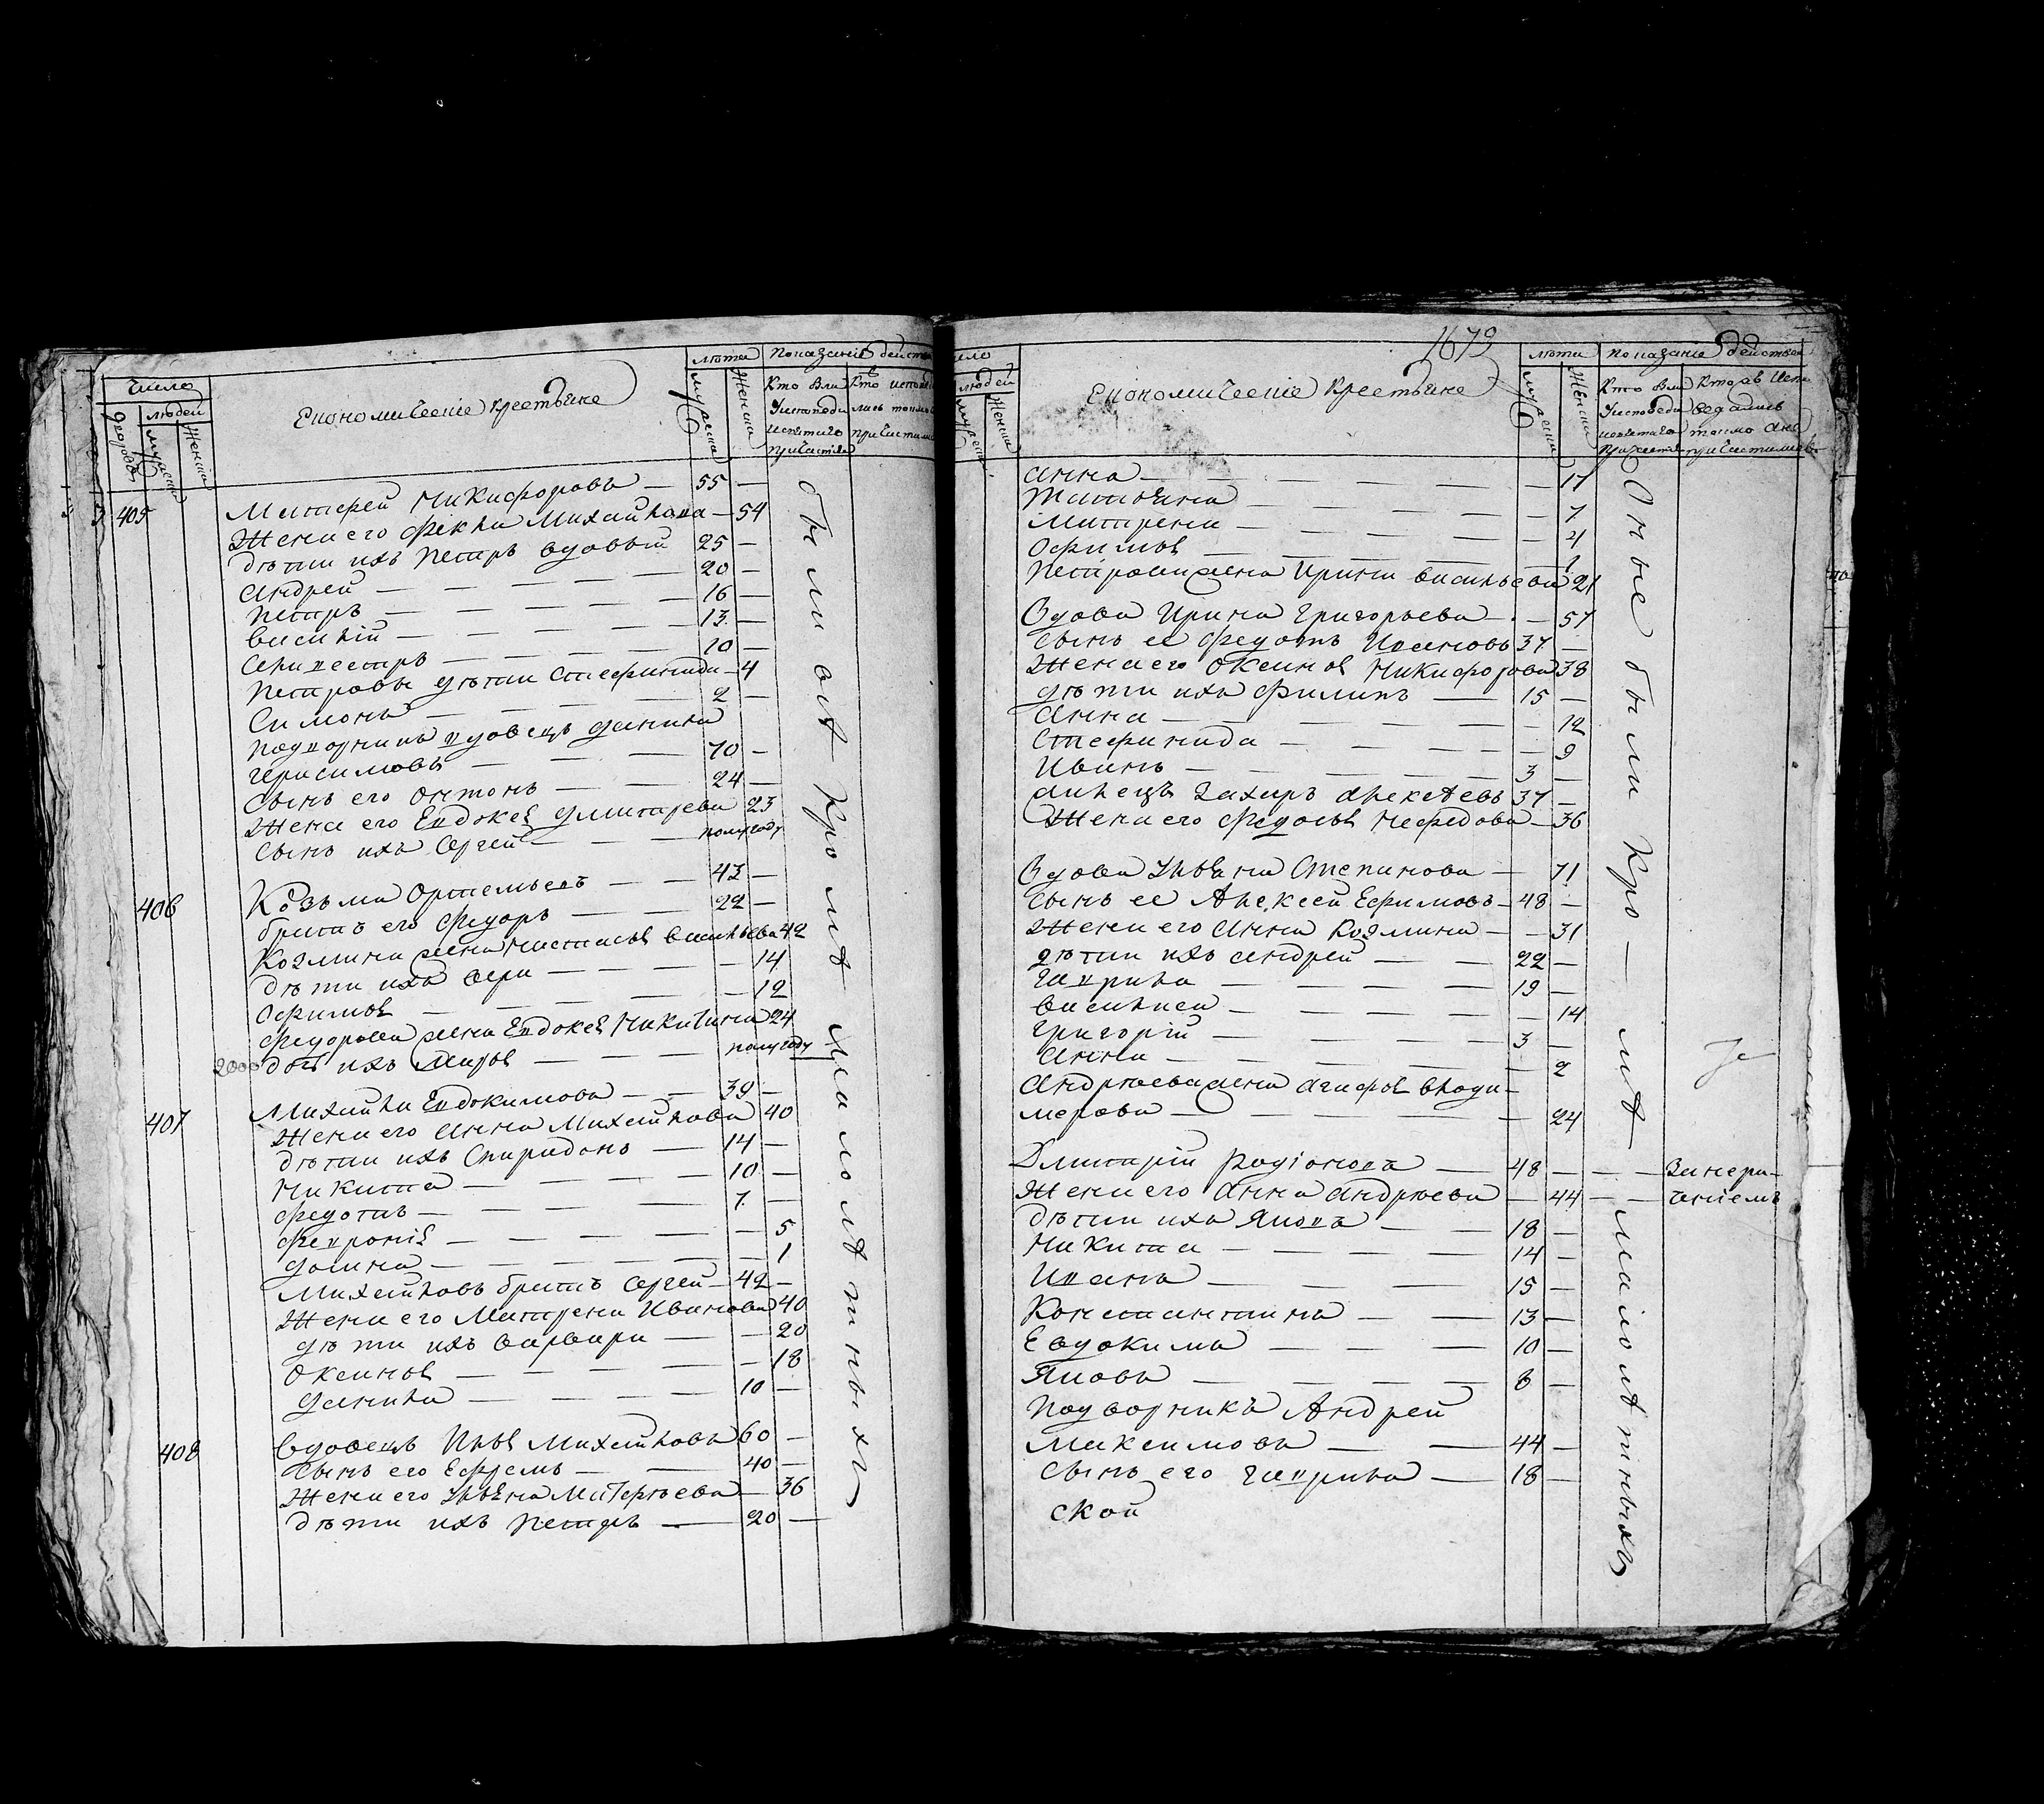 число
дворовъ
людей
мужеска
женска
Економическіе крестьяне
лѣта
мужеска
женска
показаніе действа
Кто были
у исповеди
и святаго
причастія
Кто исповеда
лись токмо
причастили
405 Матфей Никифоровъ — 55 —
Жена его Фекла Михайлова — 54
дѣти ихъ Петръ вдовый 25 —
Андрей — 20 —
Петръ — 16 —
Василій — 13 —
Селивестръ — 10 —
Петровы дѣти Стефанида — 4
Симонъ — 2 —
подворникъ вдовецъ Данила
Герасимовъ — 70 —
Сынъ его Онтонъ — 24 —
Жена его Евдокея Дмитрева 23
Сынъ ихъ Сергей — полугоду
406 Козьма Ортемьевъ — 43 —
братъ его Федоръ — 22 —
Козмина жена Настасья Васильева 42
Дѣти ихъ Вера — 14
Офимья — 12
Федорова жена Евдокея Никитина 24
2000 дочь ихъ Марья — полугоду
407 Михайла Евдокимовъ — 39 —
Жена его Анна Михайлова 40
Дѣти ихъ Спиридонъ — 14 —
Никита — 10 —
Федотъ — 7 —
Феврониѣ — 5
Домна — 1
Михайловъ братъ Сергей — 42 —
Жена его Матрена Иванова 40
дѣти ихъ Варвара — 20
Оксинья — 18
Данила — 10 —
408 Вдовецъ Илья Михайловъ 60 —
Сынъ его Ефремъ — 40 —
Жена его Ульяна Матфеева — 36
Дѣти ихъ Петръ — 20 —
были всѣ кромѣ малолѣтныхъ
1679
число
людей
мужеска
женска
Економическіе крестьяне
лѣта
мужеска
женска
показаніе действа
Кто были
у исповеди
и святаго
причастія
Кто испо
ведались
токмо а не
причастились
Анна — 11
Татьяна — 7
Матрена — 4
Офимья — 1
Петрова жена Ирина Васильева 21
Вдова Ирина Григорьева — 57
Сынъ ее Федотъ Ивановъ 37 —
Жена его Оксинья Никифорова 38
дѣти ихъ Филипъ — 15 —
Анна — 12
Стефанида — 9
Иванъ — 3 —
Захаръ Алексѣевъ 37 —
Жена его Федосья Нефедова — 36
Вдова Ульяна Степанова — 71
Сынъ ее Алексей Ефимовъ — 48 —
Жена его Анна Козмина — 31
дѣти ихъ Андрей — 22 —
Гаврила — 19 —
Василиса — 14
Григорій — 3 —
Анна — 2
Андреева жена Агафья Влади-
мерова — 24
Дмитрій Родіоновъ — 48 — — Занера-
Жена его Анна Андреева — 44 — — ченіемъ
Дѣти ихъ Яковъ — 18 —
Никита — 14 —
Иванъ — 15 —
Констянтинъ — 13 —
Евдокимъ — 10 —
Яковъ — 8 —
Подворникъ Андрей
Максимовъ — 44 —
Сынъ его Гаврила — 18 —
ской
Оные были кро-мѣ малолѣтныхъ